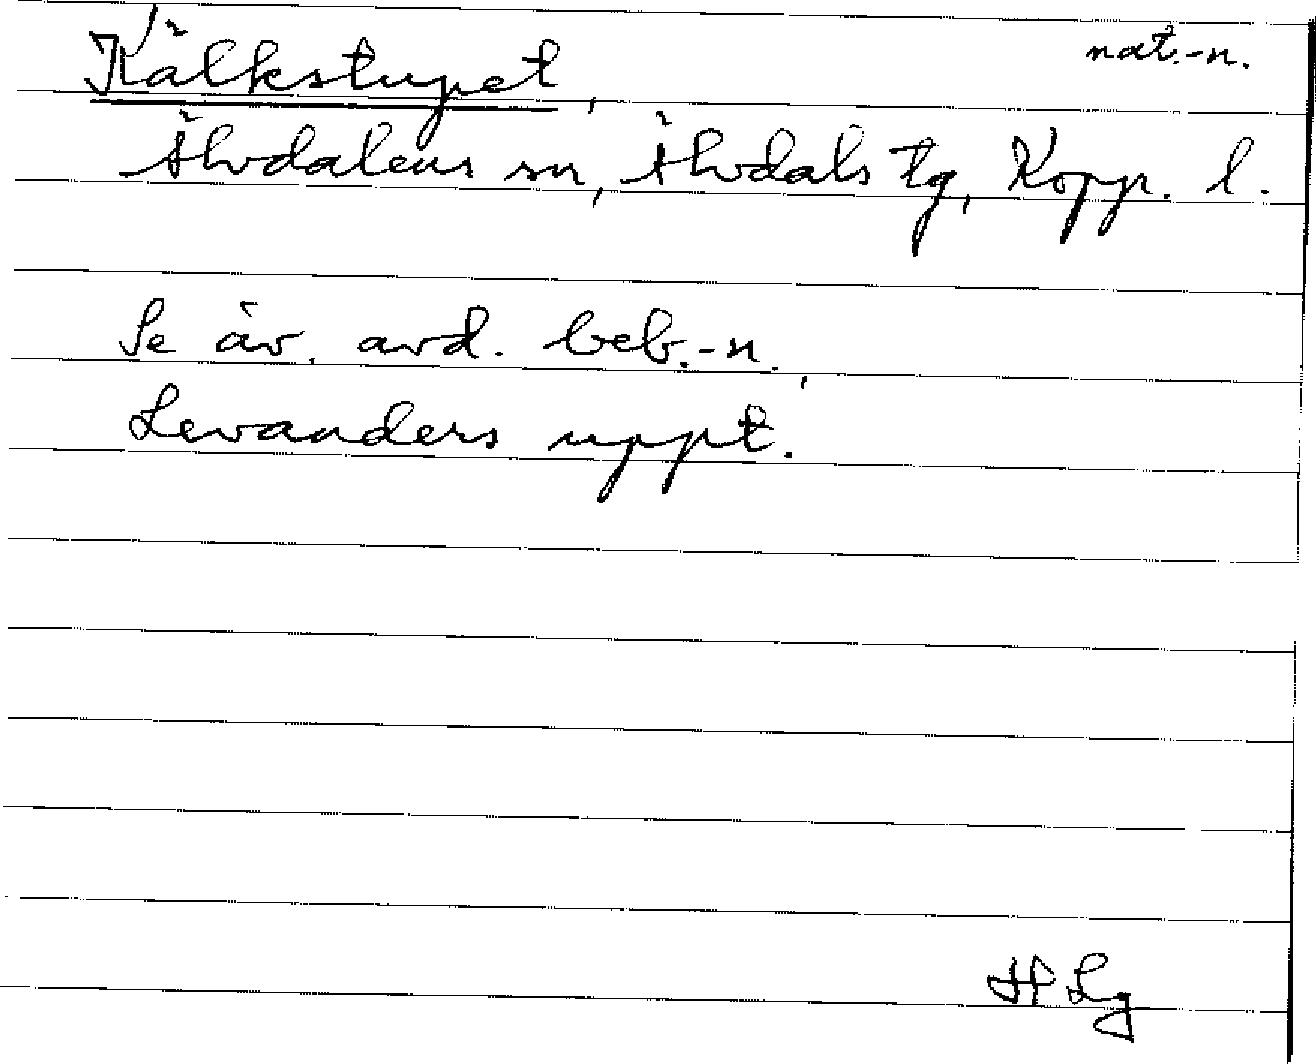 Kälkstupet, nat.-n.
Älvdalens sn, Älvdals tg, Kopp. l.
Se äv. avd. beb.-n.,
Levanders uppt.
H Lg